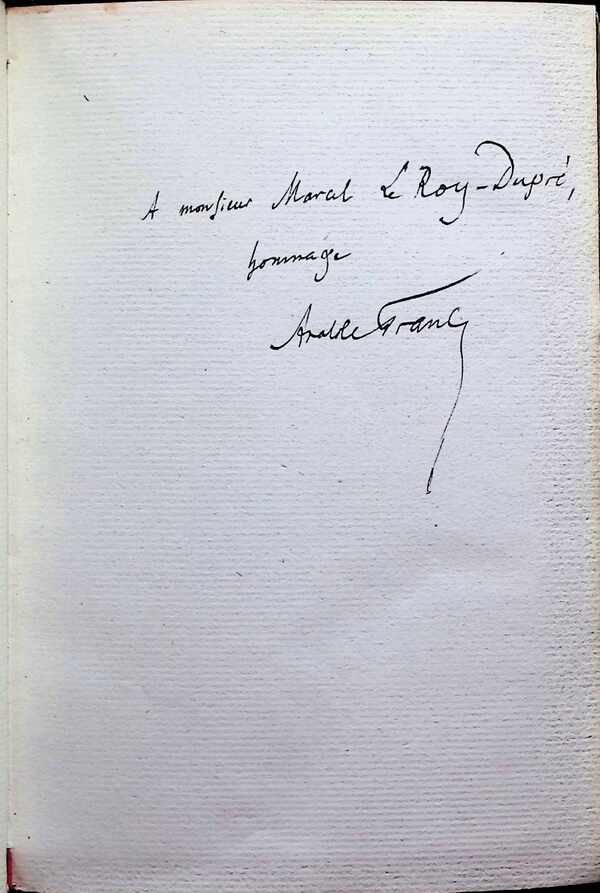 A monsieur Marcel Le Roy-Dupré,
hommage
Anatole France